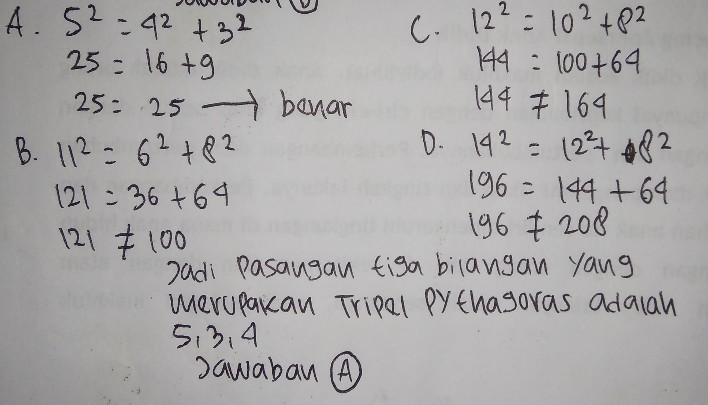 A. 5² = 4² + 3²
25 = 16 + 9
25 = 25 → benar
B. 11² = 6² + 8²
121 = 36 + 64
121 ≠ 100
C. 12² = 10² + 8²
144 = 100 + 64
144 ≠ 164
D. 14² = 12² + 8²
196 = 144 + 64
196 ≠ 208
Jadi Pasangan tiga bilangan yang
merupakan Tripel PYthagoras adalah
5, 3, 4
Jawaban A